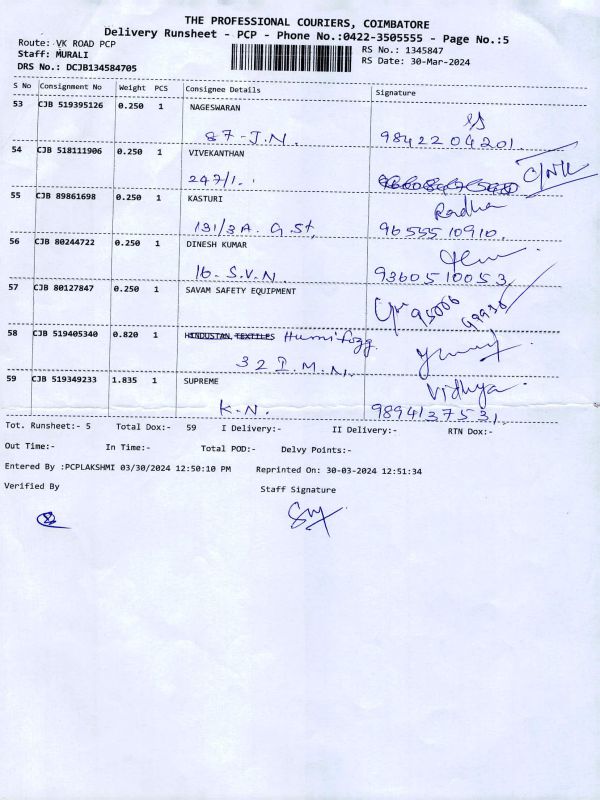 THE PROFESSIONAL COURIERS, COIMBATORE
Delivery Runsheet - PCP - Phone No.:0422-3505555 - Page No.:5
Route: VK ROAD PCP
Staff: MURALI
DRS No.: DCJB134584705
RS No.: 1345847
RS Date: 30-Mar-2024
S No Consignment No Weight PCS Consignee Details Signature
53 CJB 519395126 0.250 1 NAGESWARAN
87-J.N. 9842204201.
54 CJB 518111906 0.250 1 VIVEKANTHAN
247/1.
55 CJB 89861698 0.250 1 KASTURI Radha
131/3A. G.St, 9655510910.
56 CJB 80244722 0.250 1 DINESH KUMAR
16. S.V.N. 9360510053
57 CJB 80127847 0.250 1 SAVAM SAFETY EQUIPMENT
95006
99936
58 CJB 519405340 0.820 1 HINDUSTAN TEXTILES Humifogg.
32 I.M.N.
59 CJB 519349233 1.835 1 SUPREME Vidhya
K.N. 9894137531.
Tot. Runsheet:- 5 Total Dox:- 59 I Delivery:- II Delivery:- RTN Dox:-
Out Time:- In Time:- Total POD:- Delvy Points:-
Entered By :PCPLAKSHMI 03/30/2024 12:50:10 PM Reprinted On: 30-03-2024 12:51:34
Verified By Staff Signature